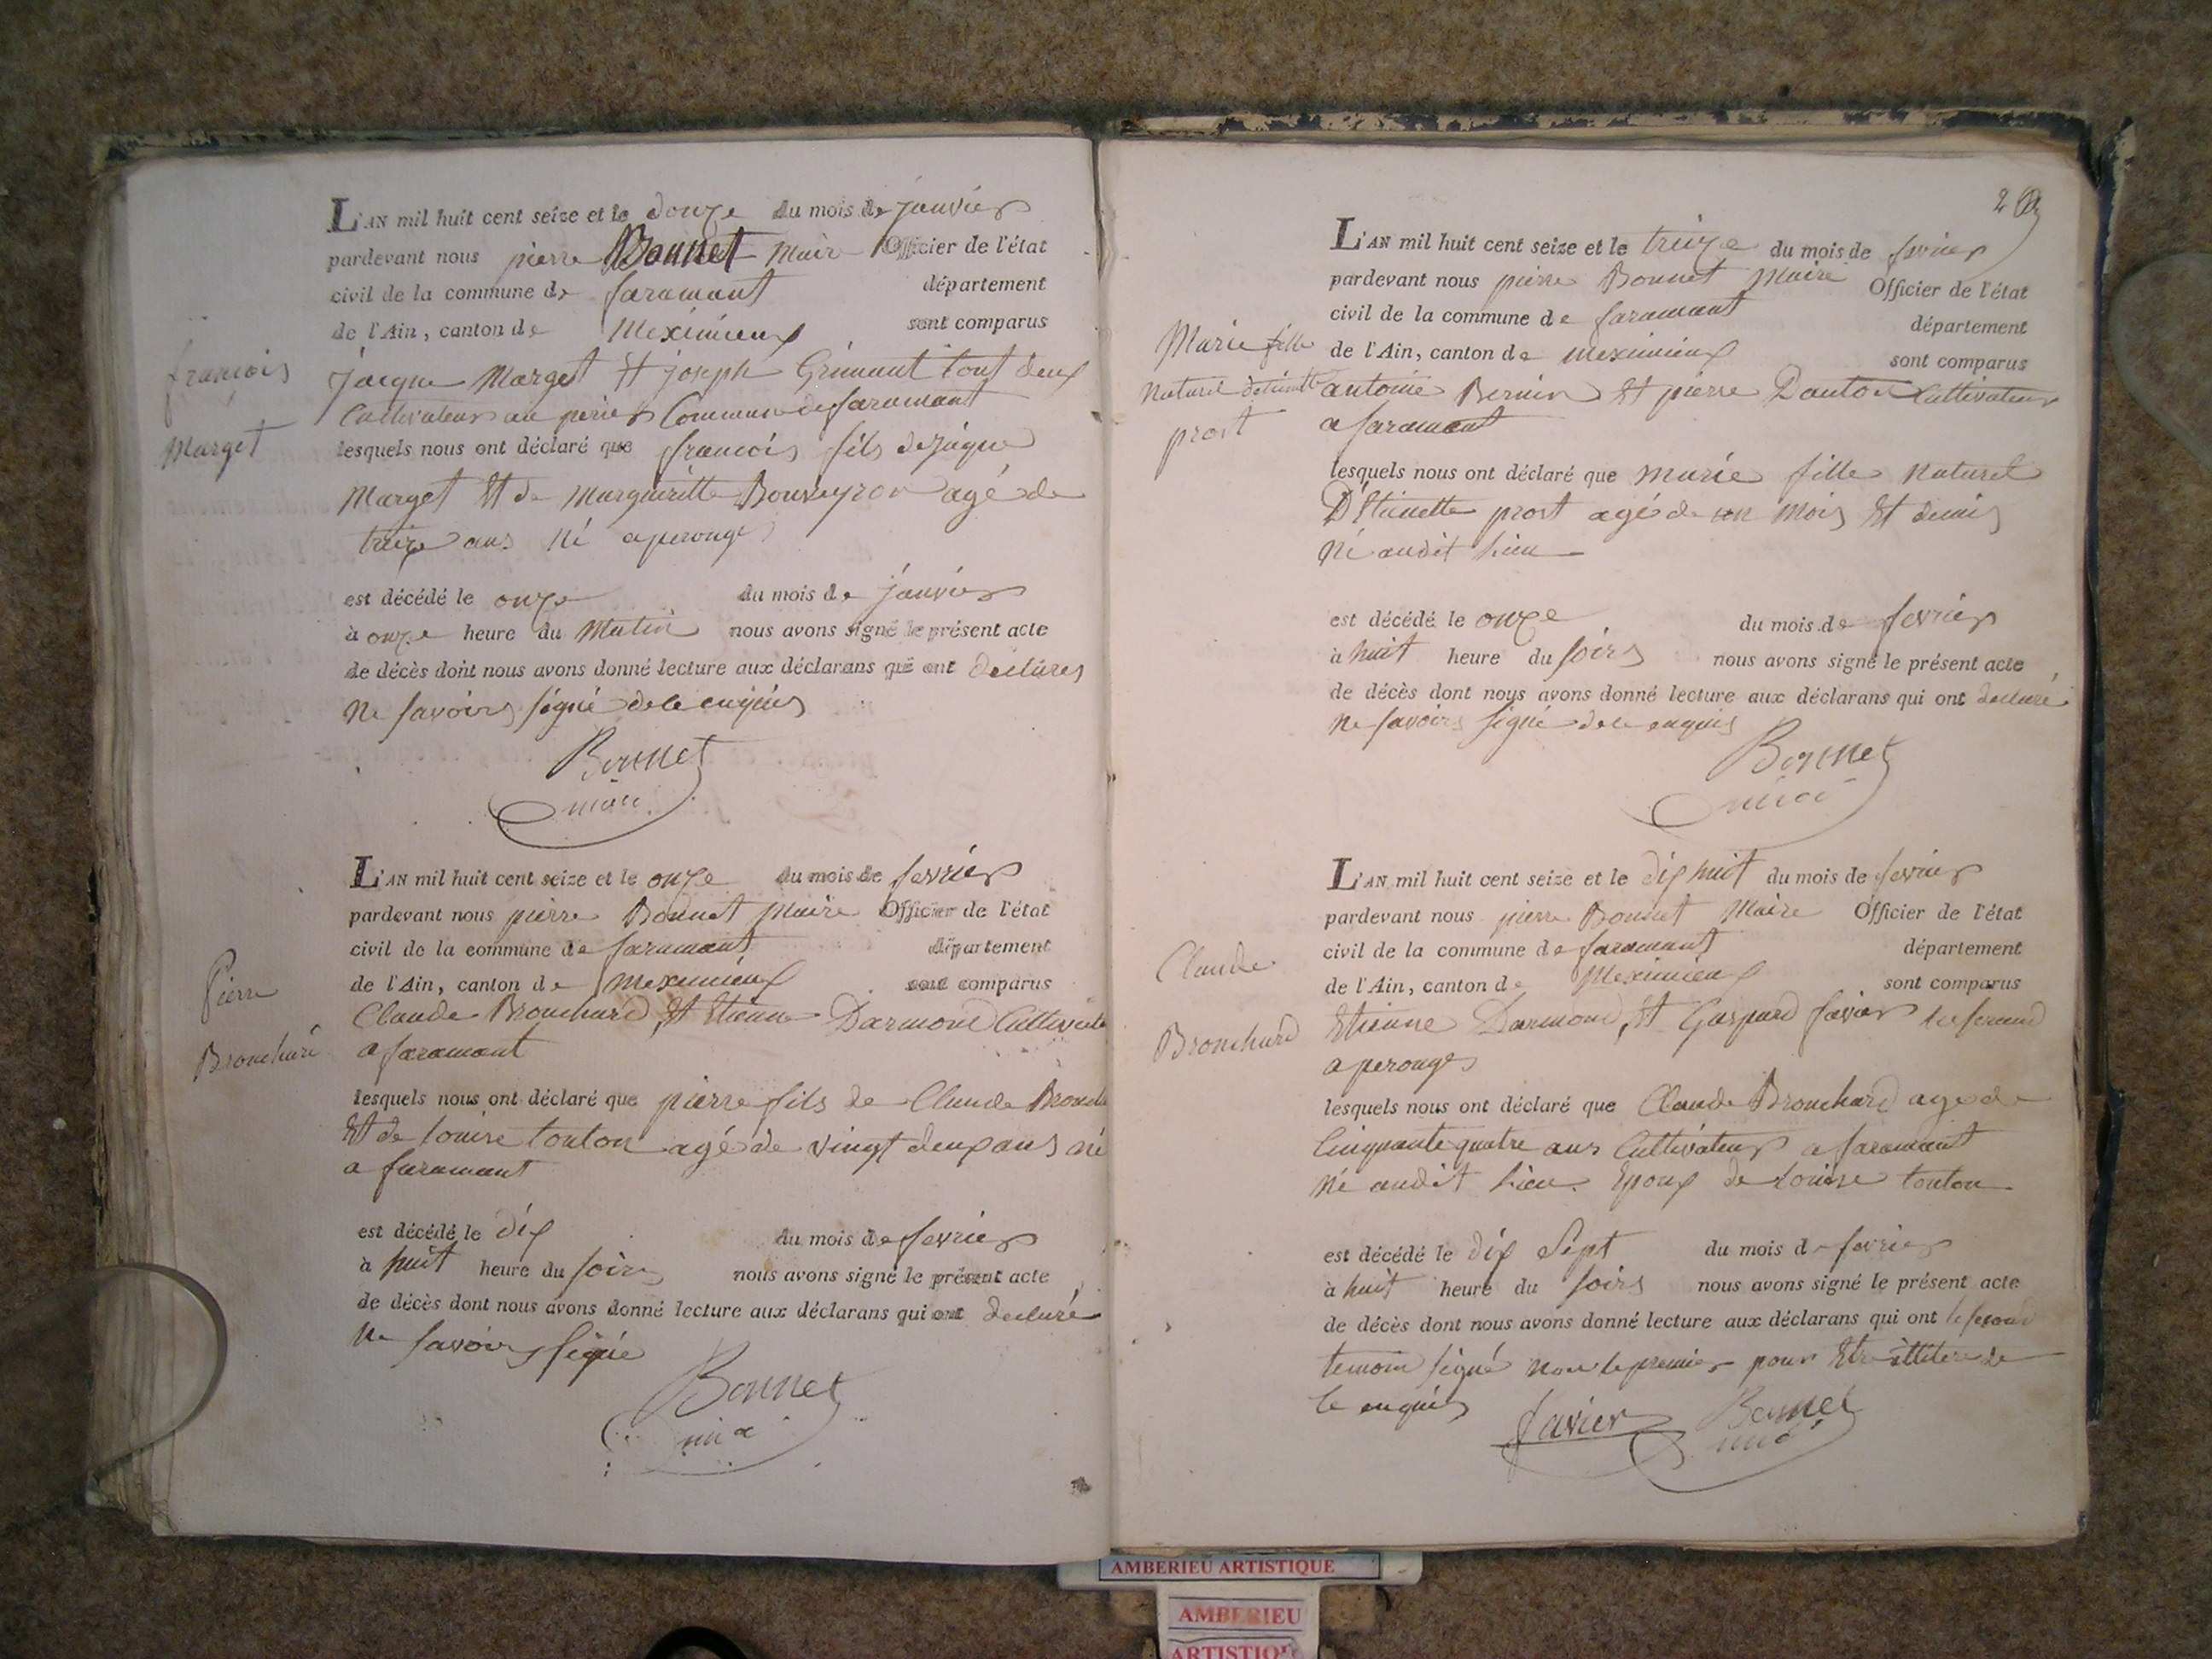 françois
Marget
L'AN mil huit cent seize et le douze du mois de janvier
pardevant nous pierre Bonnet Maire Officier de l'état
civil de la commune de faramant département
de l'Ain, canton de Meximieux sont comparus
jacque Marget Et joseph Grimaut tout deux
Cultivateur au perier Commune de faramant
lesquels nous ont déclaré que francois fils de jaque
Marget Et de Margueritte Bouveyron agé de
treize ans Né a perouge
est décédé le onze du mois de janvier
à onze heure du Matin nous avons signé le présent acte
de décès dont nous avons donné lecture aux déclarans qui ont declarés
Ne savoirs signé de le enquis
Bonnet
maire
Pierre
Bronchard
L'AN mil huit cent seize et le onze du mois de fevrier
pardevant nous pierre Bonnet Maire Officier de l'état
civil de la commune de faramant département
de l'Ain, canton de Meximieux sont comparus
Claude Bronchard Et Etienne Darmond Cultivate
a faramant
lesquels nous ont déclaré que pierre fils de Claude Bronch
Et de Louise touton agé de vingt deux ans né
a faramant
est décédé le dix du mois de fevrier
à huit heure du soirs nous avons signé le présent acte
de décès dont nous avons donné lecture aux déclarans qui ont declaré
Ne savoirs signé
Bonnet
2
Marie fille
Naturel detiennette
prost
L'AN mil huit cent seize et le treize du mois de fevrier
pardevant nous pierre Bonnet Maire Officier de l'état
civil de la commune de faramant département
de l'Ain, canton de meximieux sont comparus
antoine Bernin Et pierre Danton Cultivateur
a faramant
lesquels nous ont déclaré que marie fille Naturel
D'Etiennette prost agé de un mois Et demis
Né audit Lieu
est décédé le onze du mois de fevrier
à huit heure du soirs nous avons signé le présent acte
de décès dont nous avons donné lecture aux déclarans qui ont declaré
Ne savoirs signé de le enquis
Bonnet
Claude
Bronchard
L'AN mil huit cent seize et le dix huit du mois de fevrier
pardevant nous pierre Bonnet Maire Officier de l'état
civil de la commune de faramant département
de l'Ain, canton de Meximieux sont comparus
Etienne Darmond, Et Gaspard favier le second
a perouges
lesquels nous ont déclaré que Claude Bronchard age de
Cinquante quatre ans Cultivateur a faramant
Né audit Lieu Epoux de Louise touton
est décédé le dix Sept du mois de fevrier
à huit heure du soirs nous avons signé le présent acte
de décès dont nous avons donné lecture aux déclarans qui ont le second
temoin signé Non le premier pour Etre illitere de
le enquis
favier Bonnet
AMBERIEU ARTISTIQUE
AMBERIEU
ARTISTIQUE